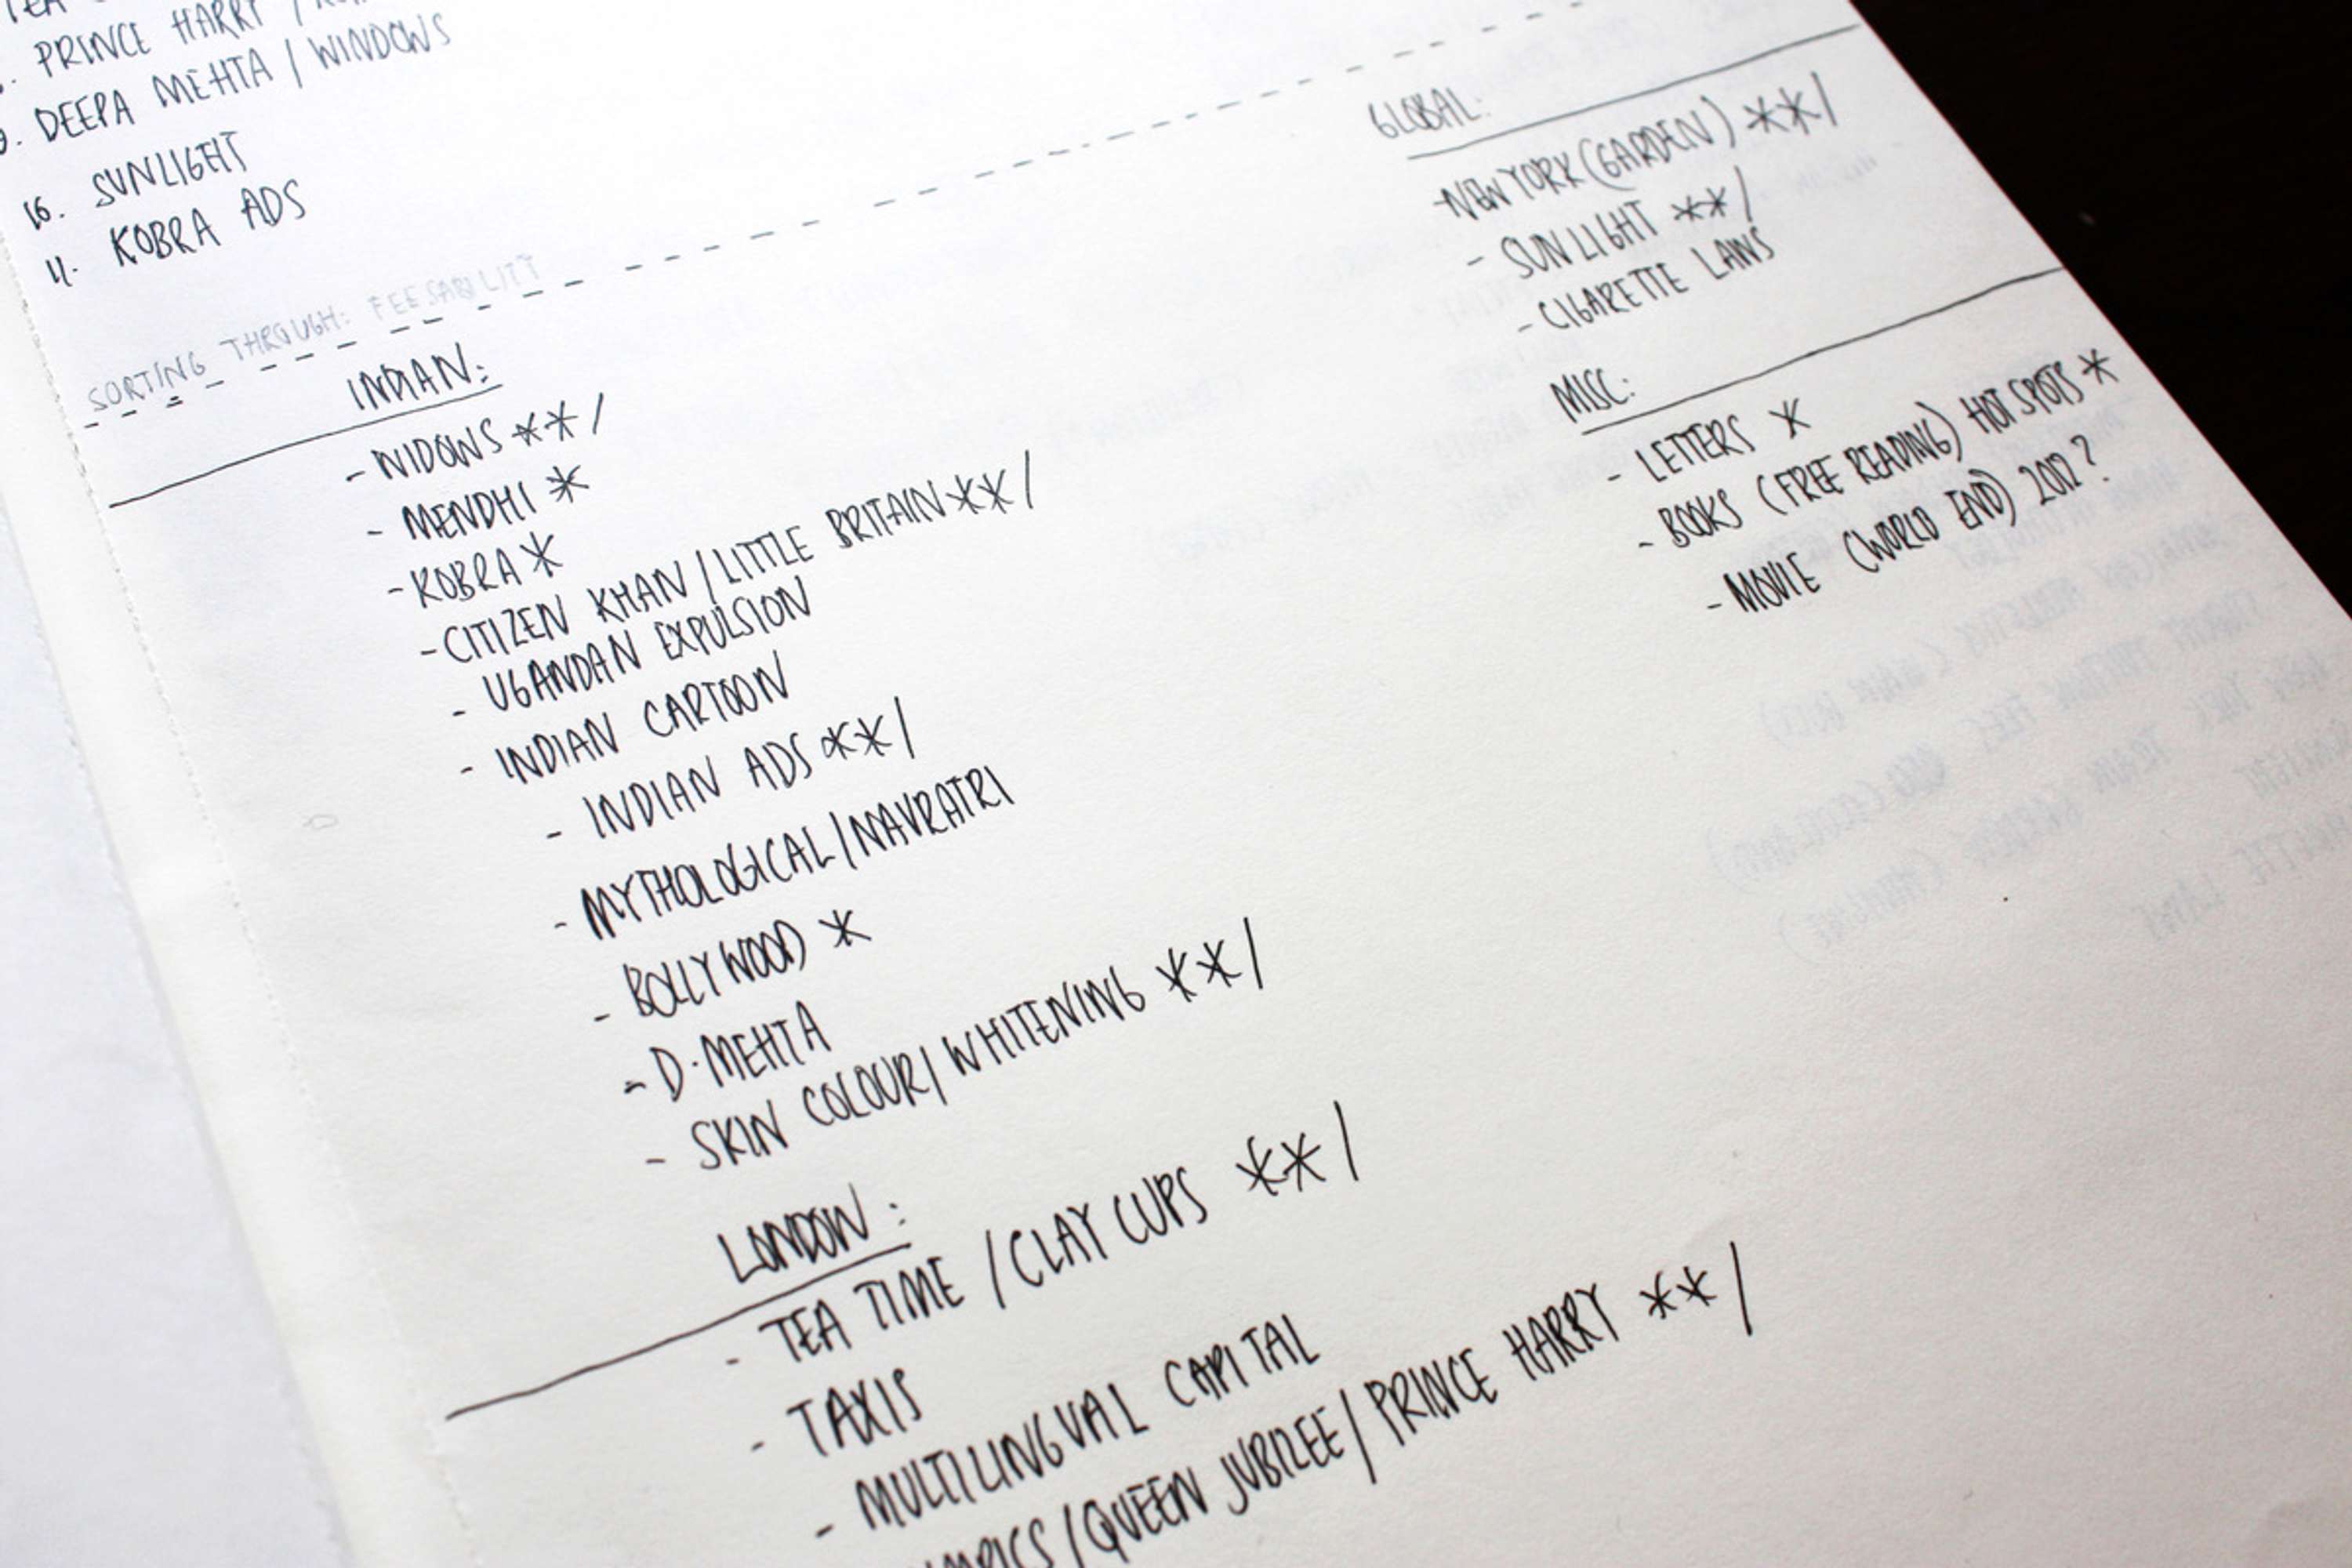 TEA
PRINCE HARRY /
9. DEEPA MEHTA / WINDOWS
10. SUNLIGHT
11. KOBRA ADS
SORTING THROUGH: FEESABILITY
INDIAN:
- WIDOWS ** /
- MENDHI *
- KOBRA *
- CITIZEN KHAN / LITTLE BRITAIN ** /
- UGANDAN EXPULSION
- INDIAN CARTOON
- INDIAN ADS ** /
- MYTHOLOGICAL / NAVRATRI
- BOLLYWOOD *
- D. MEHTA
- SKIN COLOUR / WHITENING ** /
LONDON:
- TEA TIME / CLAY CUPS ** /
- TAXIS
- MULTILINGUAL CAPITAL
/ QUEEN JUBILEE / PRINCE HARRY ** /
GLOBAL:
- NEW YORK (GARDEN) ** /
- SUNLIGHT ** /
- CIGARETTE LAWS
MISC:
- LETTERS *
- BOOKS (FREE READING) HOT SPOTS *
- MOVIE (WORLD END) 2012 ?